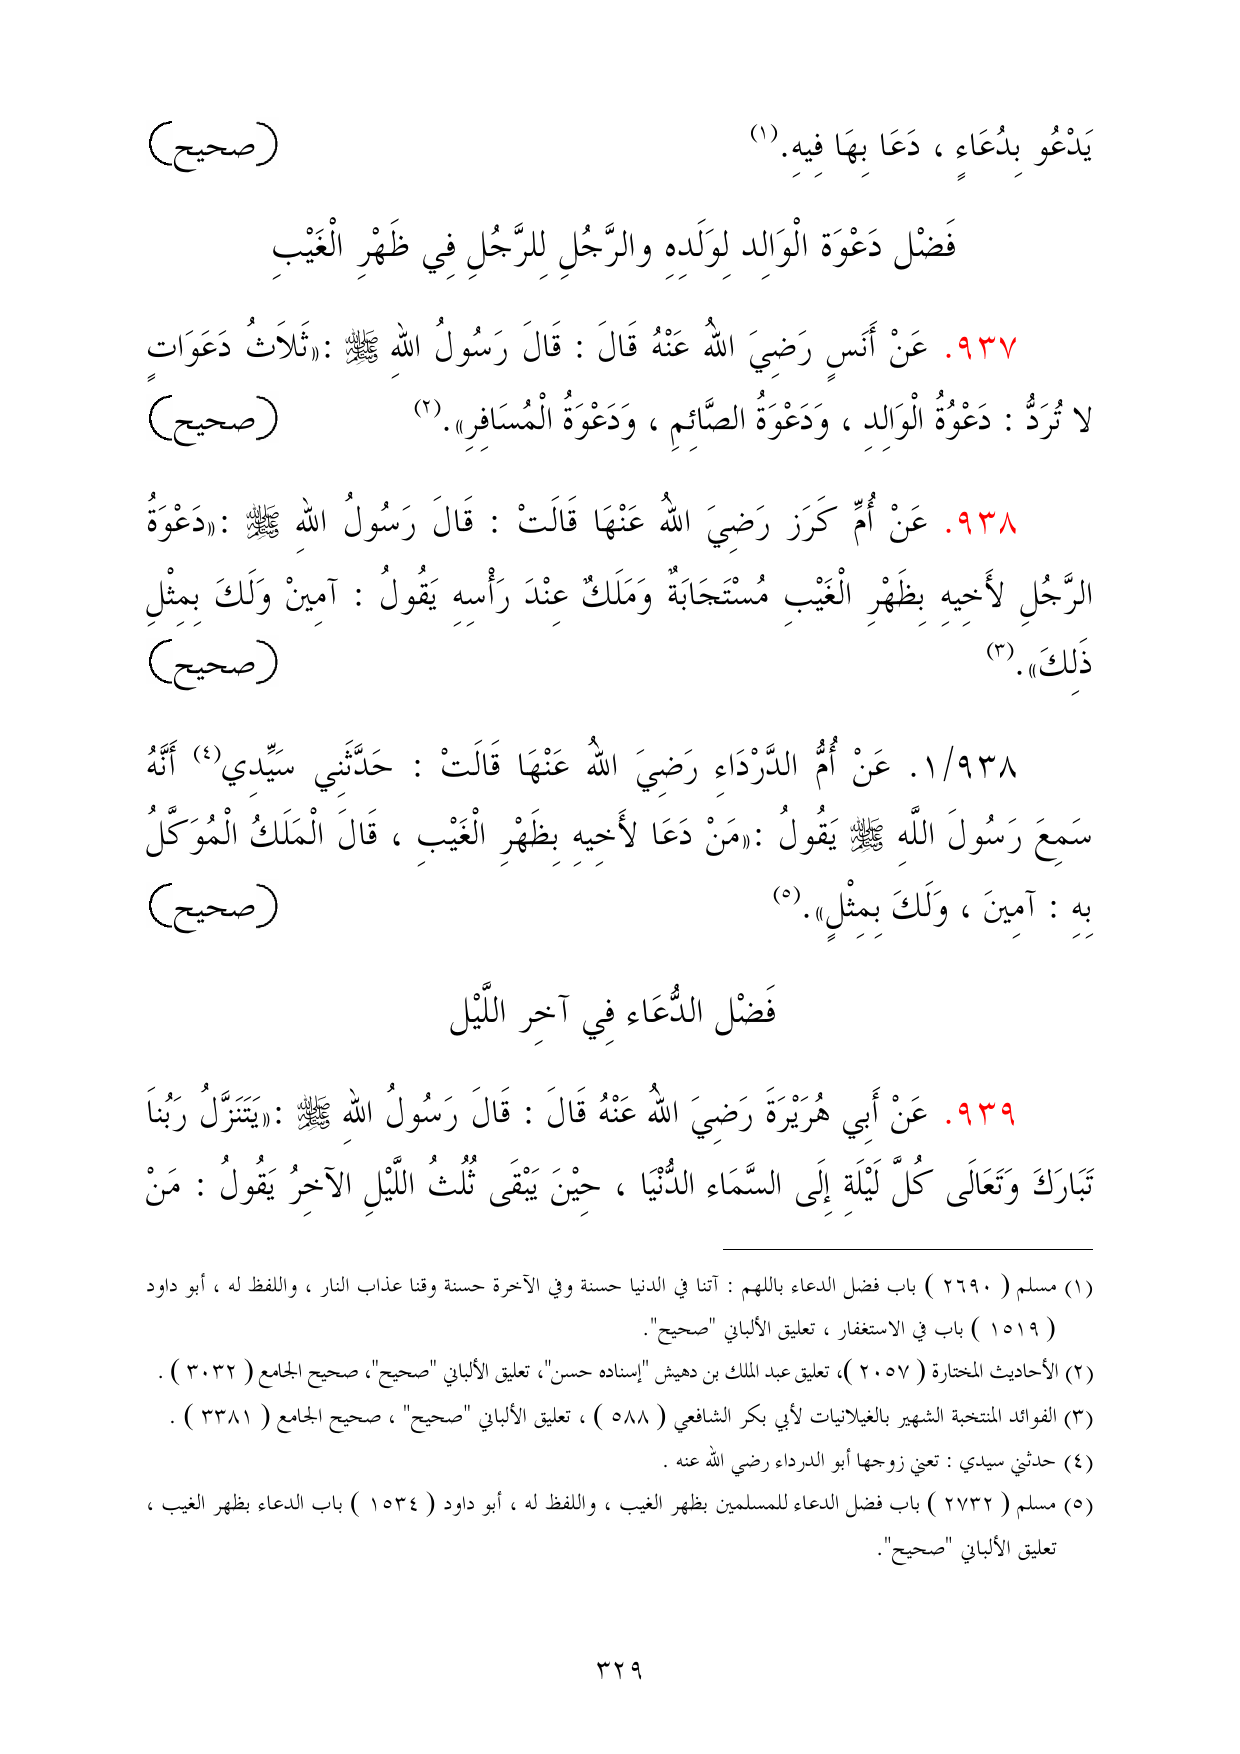 يَدْعُو بِدُعَاءٍ ، دَعَا بِهَا فِيهِ.(١) (صحيح)
فَضْل دَعْوَة الْوَالِد لِوَلَدِهِ والرَّجُلِ لِلرَّجُلِ فِي ظَهْرِ الْغَيْبِ
٩٣٧. عَنْ أَنَسٍ رَضِيَ اللهُ عَنْهُ قَالَ : قَالَ رَسُولُ اللهِ ﷺ :«ثَلاَثُ دَعَوَاتٍ
لا تُرَدُّ : دَعْوُةُ الْوَالِدِ ، وَدَعْوَةُ الصَّائِمِ ، وَدَعْوَةُ الْمُسَافِرِ».(٢) (صحيح)
٩٣٨. عَنْ أُمِّ كَرَز رَضِيَ اللهُ عَنْهَا قَالَتْ : قَالَ رَسُولُ اللهِ ﷺ :«دَعْوَةُ
الرَّجُلِ لأَخِيهِ بِظَهْرِ الْغَيْبِ مُسْتَجَابَةٌ وَمَلَكٌ عِنْدَ رَأْسِهِ يَقُولُ : آمِينْ وَلَكَ بِمِثْلِ
ذَلِكَ».(٣) (صحيح)
١/٩٣٨. عَنْ أُمُّ الدَّرْدَاءِ رَضِيَ اللهُ عَنْهَا قَالَتْ : حَدَّثَنِي سَيِّدِي(٤) أَنَّهُ
سَمِعَ رَسُولَ اللَّهِ ﷺ يَقُولُ :«مَنْ دَعَا لأَخِيهِ بِظَهْرِ الْغَيْبِ ، قَالَ الْمَلَكُ الْمُوَكَّلُ
بِهِ : آمِينَ ، وَلَكَ بِمِثْلٍ».(٥) (صحيح)
فَضْل الدُّعَاء فِي آخِر اللَّيْل
٩٣٩. عَنْ أَبِي هُرَيْرَةَ رَضِيَ اللهُ عَنْهُ قَالَ : قَالَ رَسُولُ اللهِ ﷺ :«يَتَنَزَّلُ رَبُناَ
تَبَارَكَ وَتَعَالَى كُلَّ لَيْلَةِ إِلَى السَّمَاء الدُّنْيَا ، حِيْنَ يَبْقَى ثُلُثُ اللَّيْلِ الآخِرُ يَقُولُ : مَنْ
(١) مسلم ( ٢٦٩٠ ) باب فضل الدعاء باللهم : آتنا في الدنيا حسنة وفي الآخرة حسنة وقنا عذاب النار ، واللفظ له ، أبو داود
( ١٥١٩ ) باب في الاستغفار ، تعليق الألباني "صحيح".
(٢) الأحاديث المختارة ( ٢٠٥٧ )، تعليق عبد الملك بن دهيش "إسناده حسن"، تعليق الألباني "صحيح"، صحيح الجامع ( ٣٠٣٢ ) .
(٣) الفوائد المنتخبة الشهير بالغيلانيات لأبي بكر الشافعي ( ٥٨٨ ) ، تعليق الألباني "صحيح" ، صحيح الجامع ( ٣٣٨١ ) .
(٤) حدثني سيدي : تعني زوجها أبو الدرداء رضي الله عنه .
(٥) مسلم ( ٢٧٣٢ ) باب فضل الدعاء للمسلمين بظهر الغيب ، واللفظ له ، أبو داود ( ١٥٣٤ ) باب الدعاء بظهر الغيب ،
تعليق الألباني "صحيح".
٣٢٩